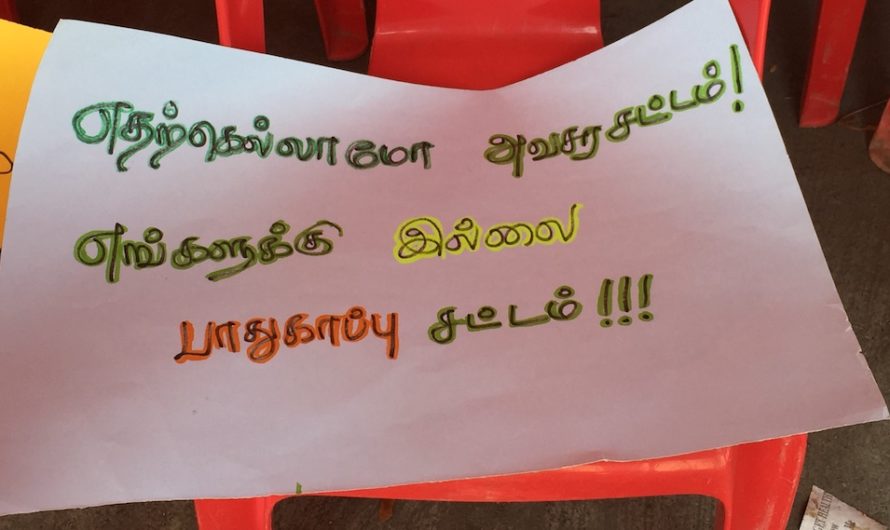 எதற்கெல்லாமோ அவசர சட்டம்!
எங்களுக்கு இல்லை
பாதுகாப்பு சட்டம் !!!